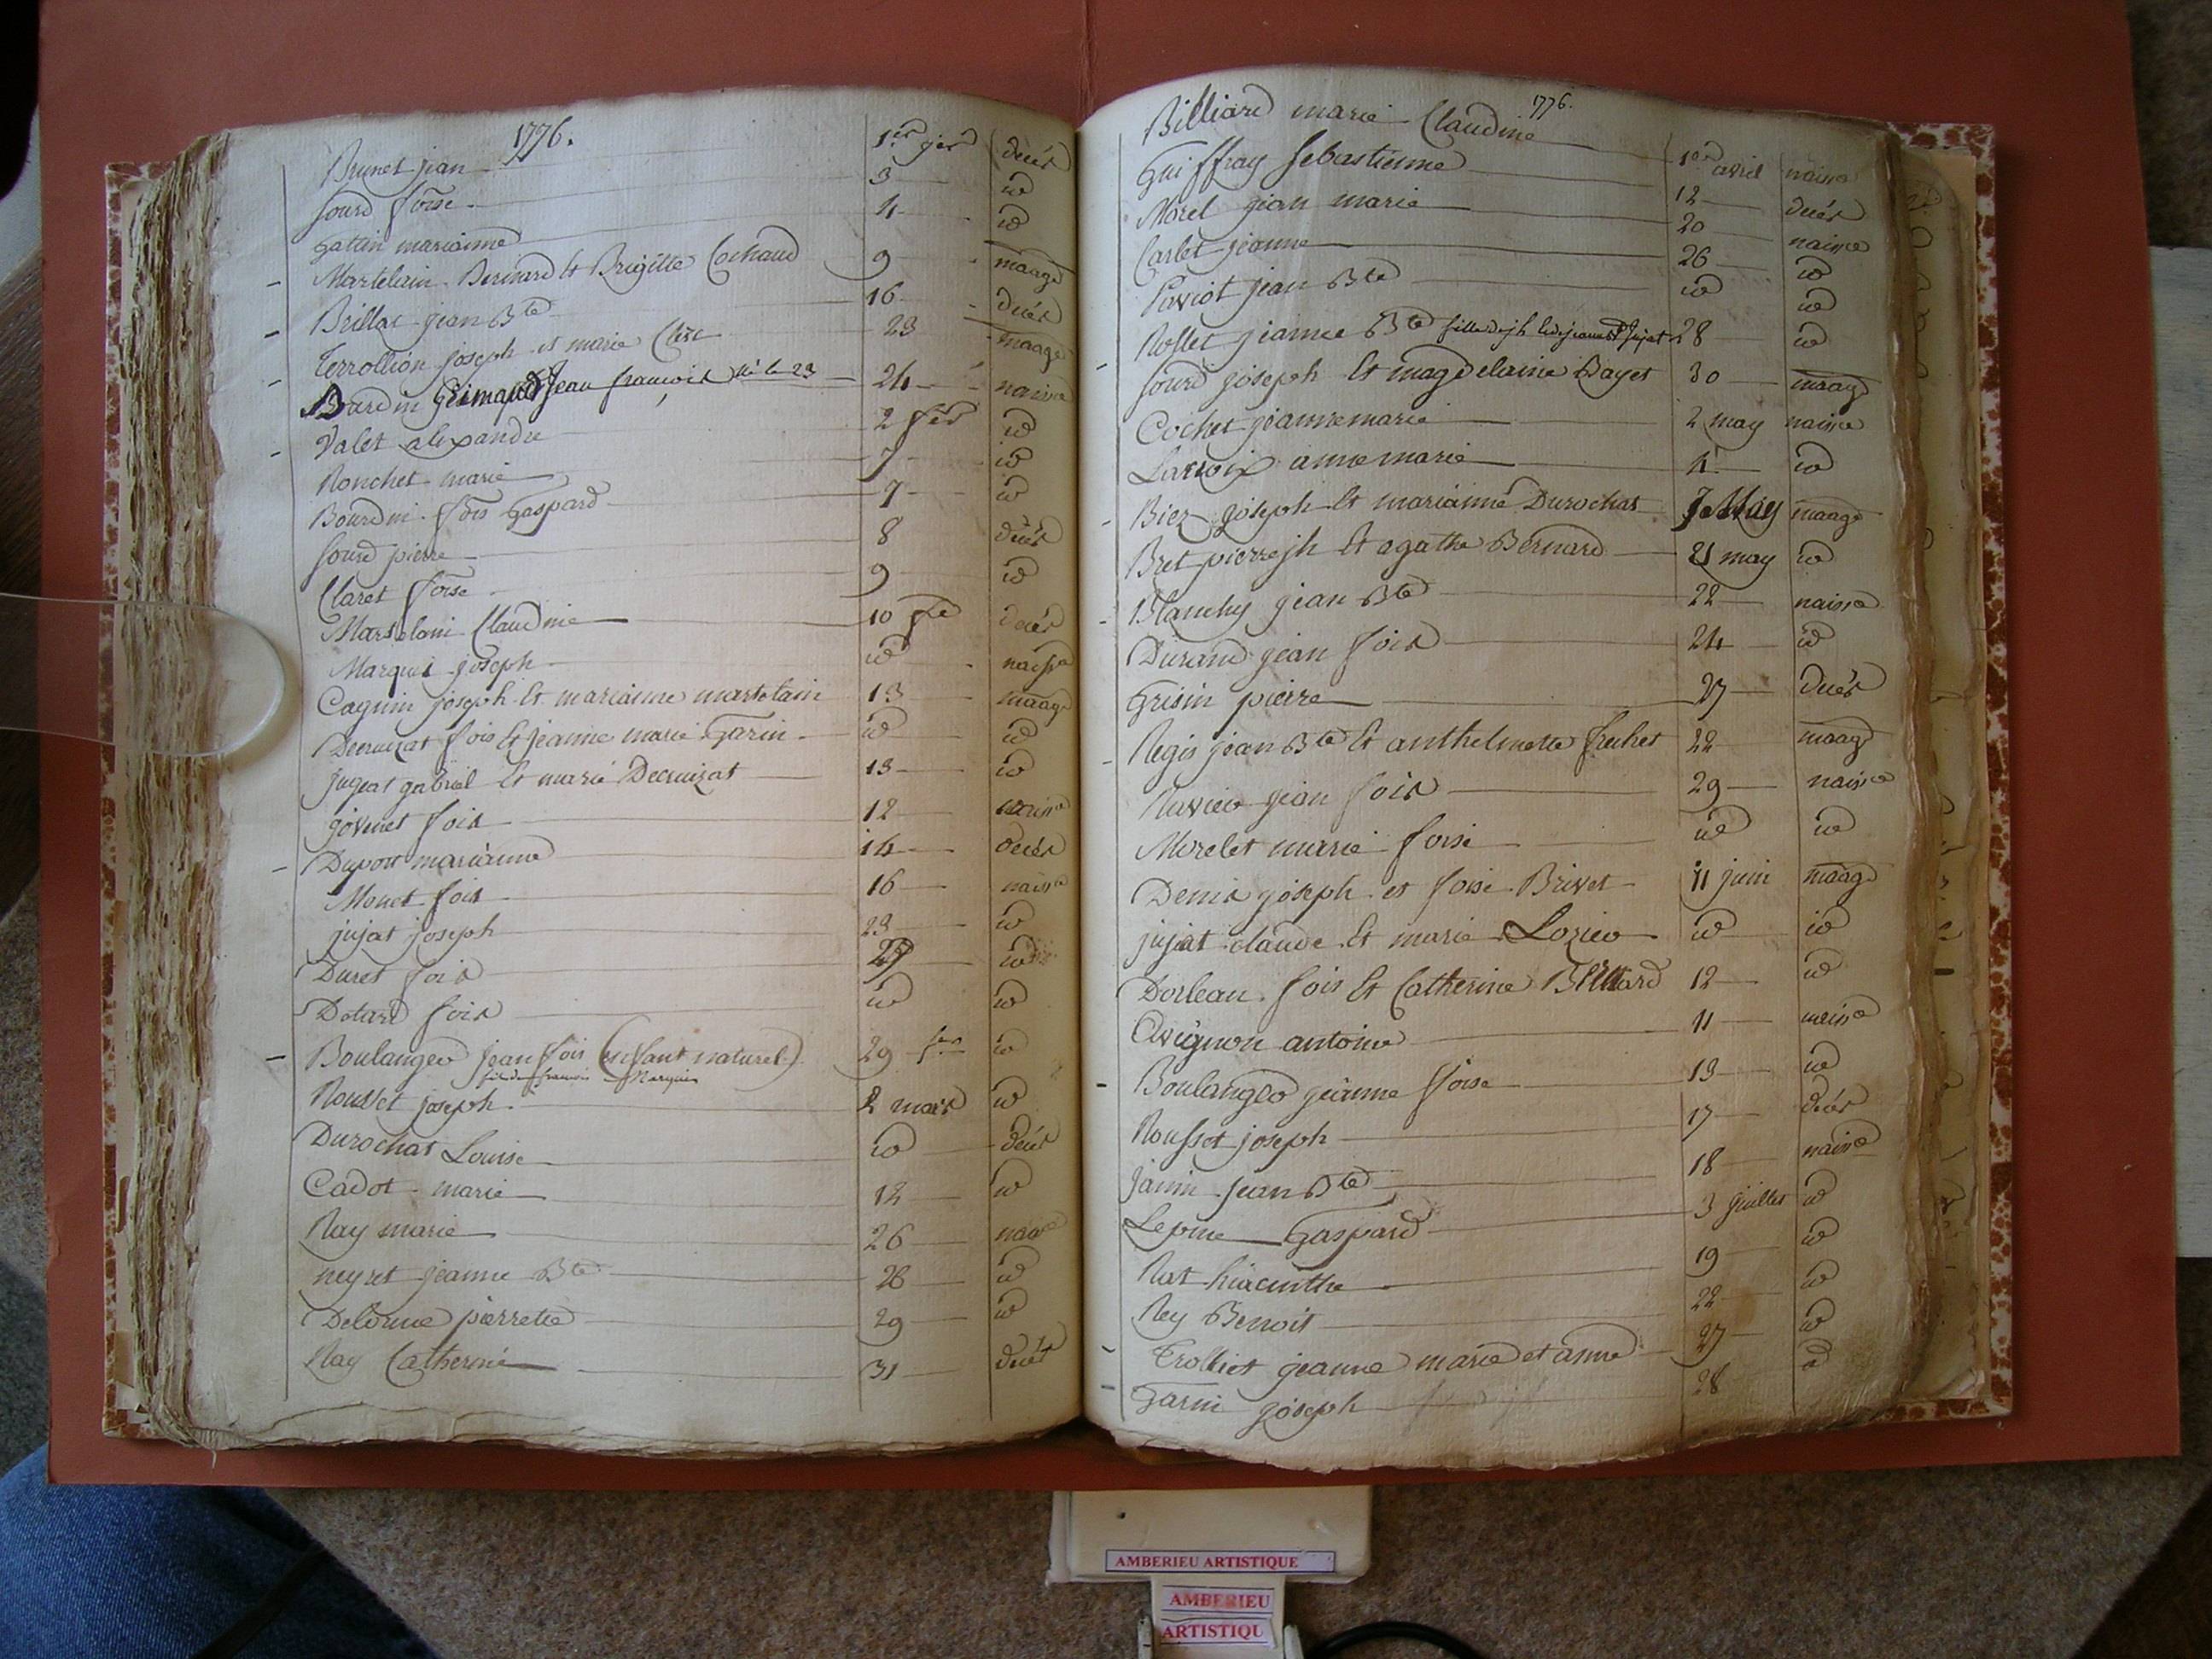 1776.
Brunet jean 1er jer decés
sourd foise 3 id
gattin marianne 4 id
Martelain Bernard et Brigitte Cochaud 9 maage
Brillat jean Bte 16 decés
Terrollion joseph et marie Clerc 23 maage
Bardin Grimaud Jean francois né le 23 24 naisce
Valet alexandre 2 fer id
Ronchet marie 7 id
Bourdin fois Gaspard 7 id
sourd pierre 8 decés
Claret foise 9 id
Martelain Claudine 10 fe decés
Marquis joseph id naisce
Cagnin joseph et marianne martelain 13 maage
Decruizat fois et jeanne marie Garin id id
jujeat gabriel et marie Decruizat 13 id
jovenet fois 12 naisce
Dupont marianne 14 decés
Monet fois 16 naisce
jujat joseph 23 id
Duret fois 27 id
Dotard fois id id
Boulanger jean fois (enfant naturel) 29 fer id
fils de francois Marquis
Rousset joseph 2 mars id
Durochat Louise id decés
Cadot marie 12 id
Ray marie 26 naisce
neyret jeanne Bte 28 id
Delorme pierrette 29 id
Ray Catherine 31 decés
1776.
Billiard marie Claudine
Guiffray sebastienne 1er avril naisce
Morel jean marie 12 decés
Carlet jeanne 20 naisce
Paviot jean Bte 26 id
Rollet jeanne Bte fille de jh et de jeanne Jujat 28 id
sourd joseph et magdelaine Bayet 30 maage
Cochet jeanne marie 2 may naisce
Lacroix anne marie 4 id
Biez joseph et marianne Durochat 7 May maage
Bret pierre jh et agathe Bernard 21 may id
Blanchy jean Bte 22 naisce
Durand jean fois 24 id
Grisin pierre 27 decés
Regis jean Bte et anthelmette frechet 22 maage
Ravier jean fois 29 naisce
Morelet marie foise id id
Denis joseph et foise Brivet 11 juin maage
jujat claude et marie Lozier id id
Dorleau fois et Catherine Billiard 12 id
Avignon antoine 11 naisce
Boulanger jeanne foise 13 id
Rousset joseph 17 decés
Janin jean Bte 18 naisce
Lepine Gaspard 3 juillet id
Rat hiacinthe 19 id
Rey Benoit 22 id
Trolliet jeanne marie et anne 27 id
Garin joseph 28 id
AMBERIEU ARTISTIQUE
AMBERIEU
ARTISTIQU